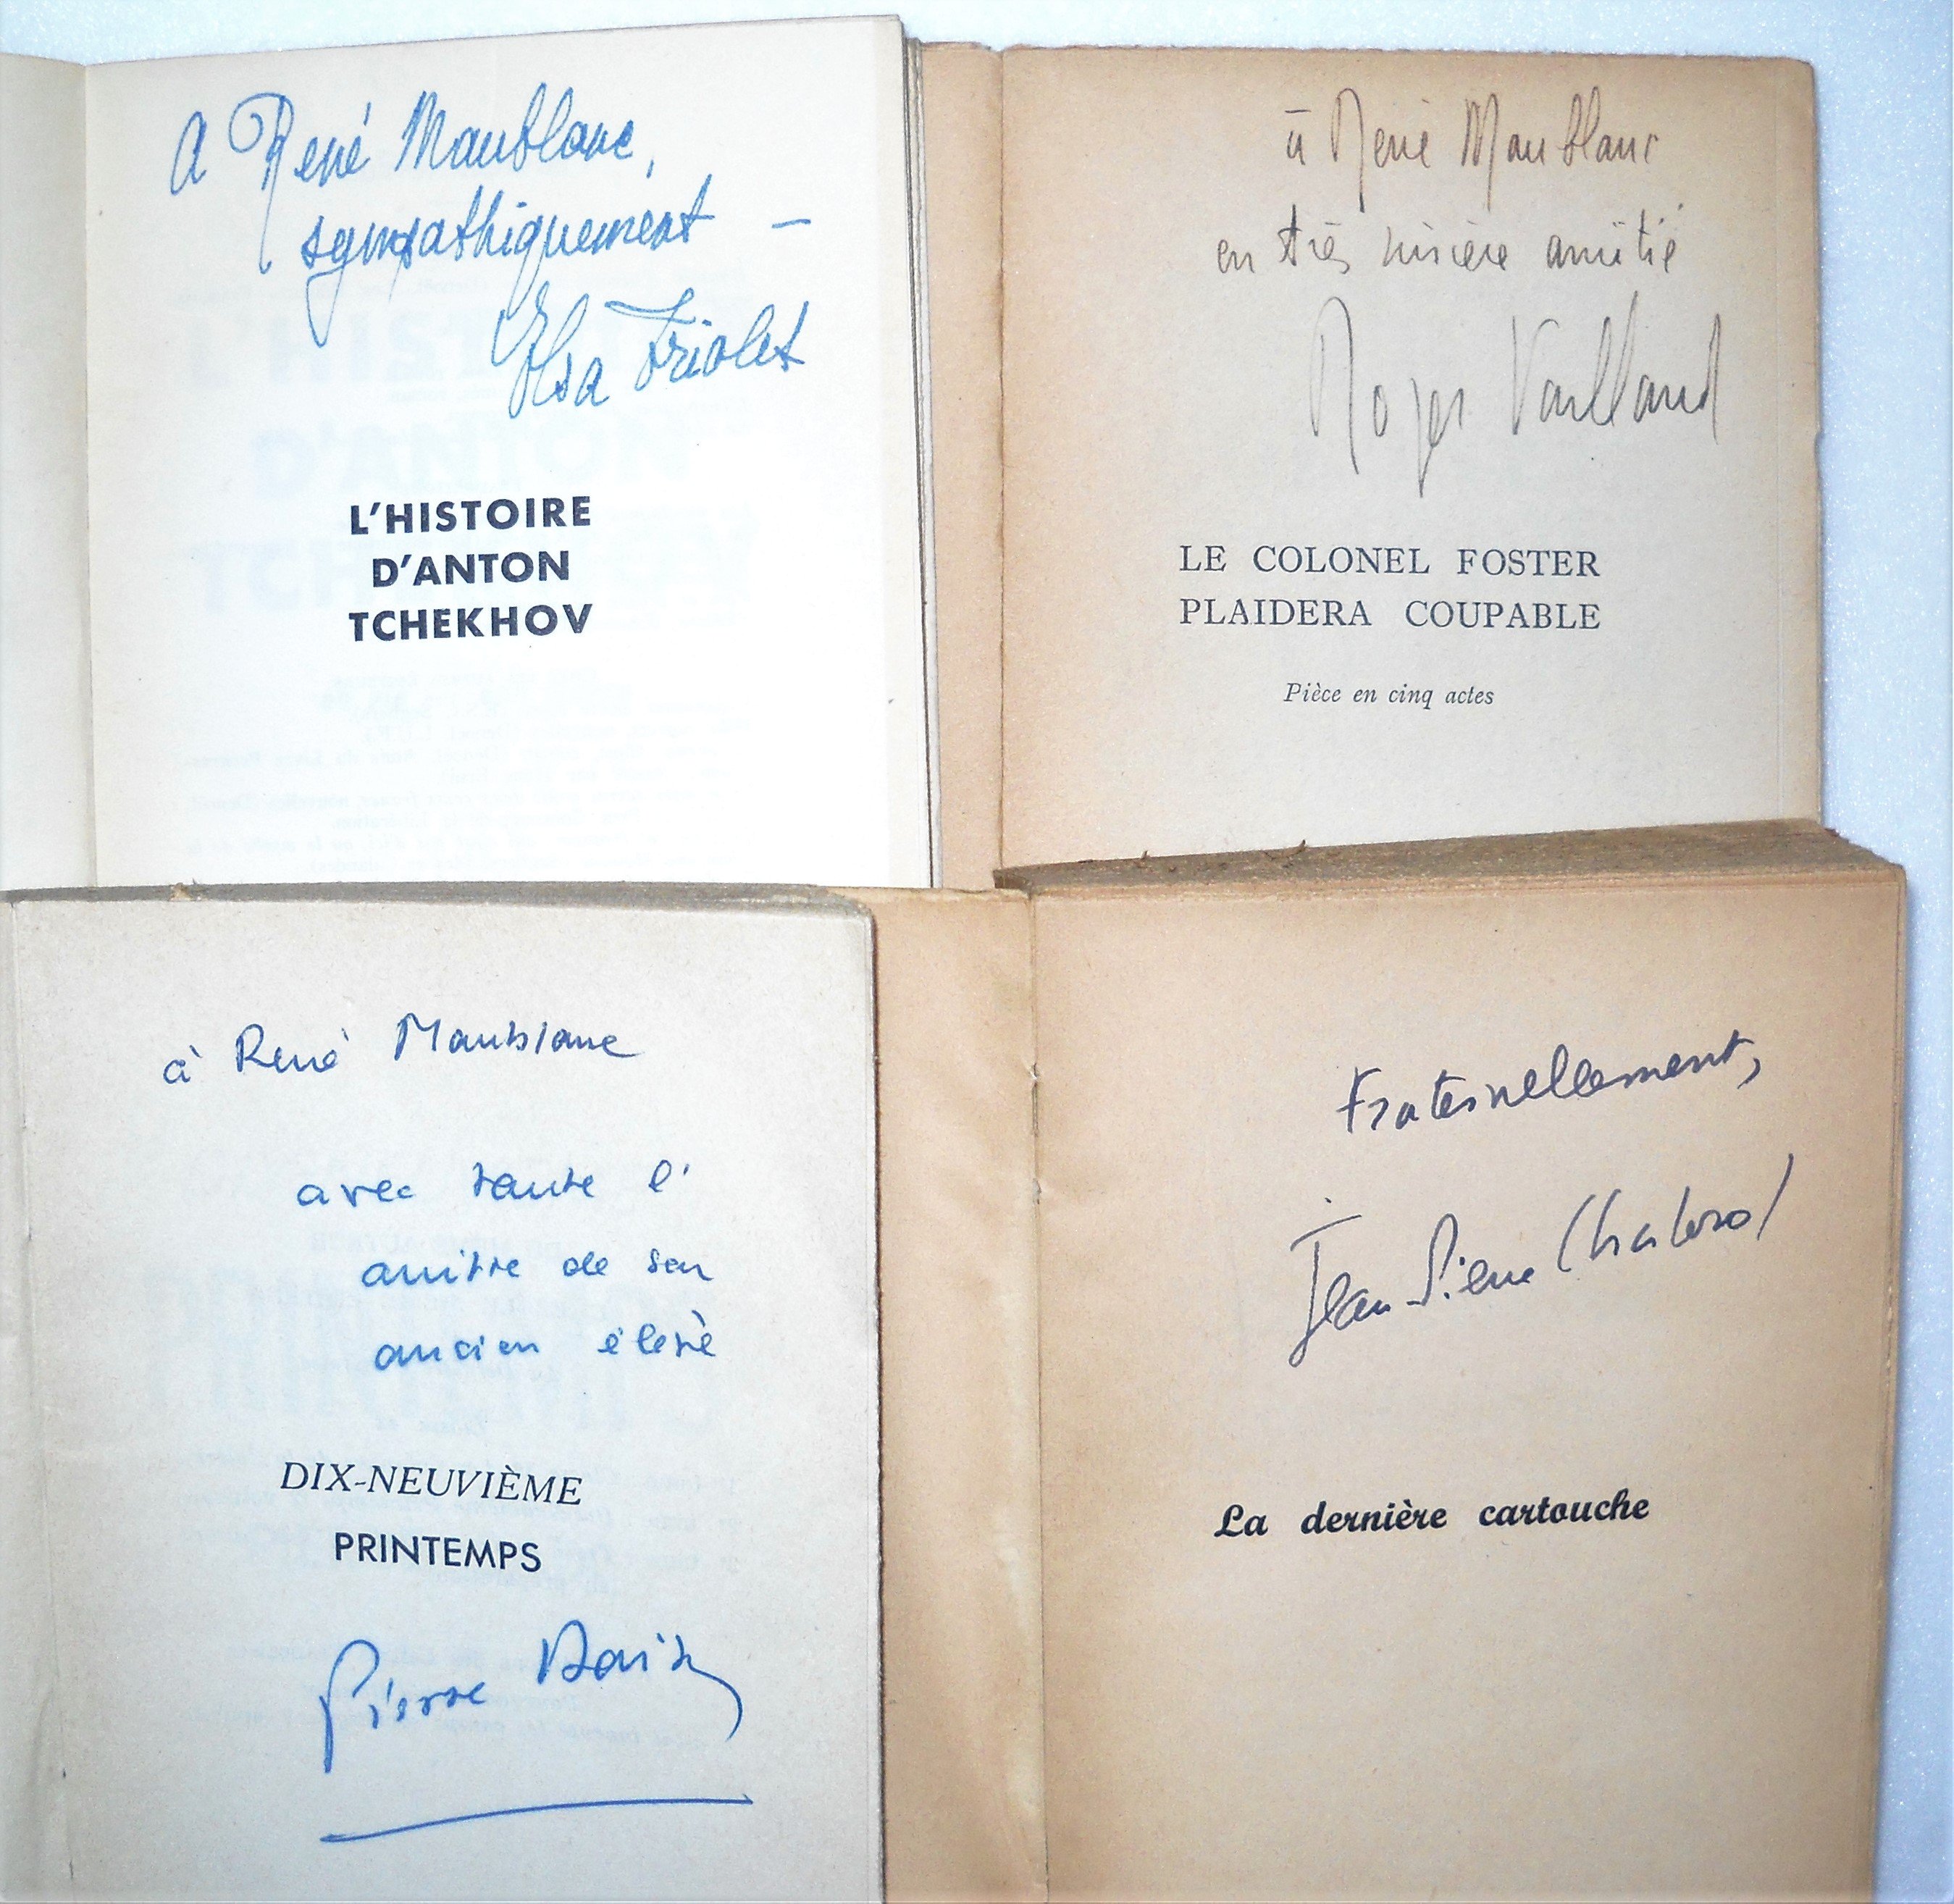 A René Maublanc,
sympathiquement —
Elsa Triolet
L'HISTOIRE
D'ANTON
TCHEKHOV
à René Maublanc
en très sincère amitié
Roger Vailland
LE COLONEL FOSTER
PLAIDERA COUPABLE
Pièce en cinq actes
à René Maublanc
avec toute l'
amitié de son
ancien élève
DIX-NEUVIÈME
PRINTEMPS
Pierre Daix
Fraternellement,
Jean Pierre Chabrol
La dernière cartouche